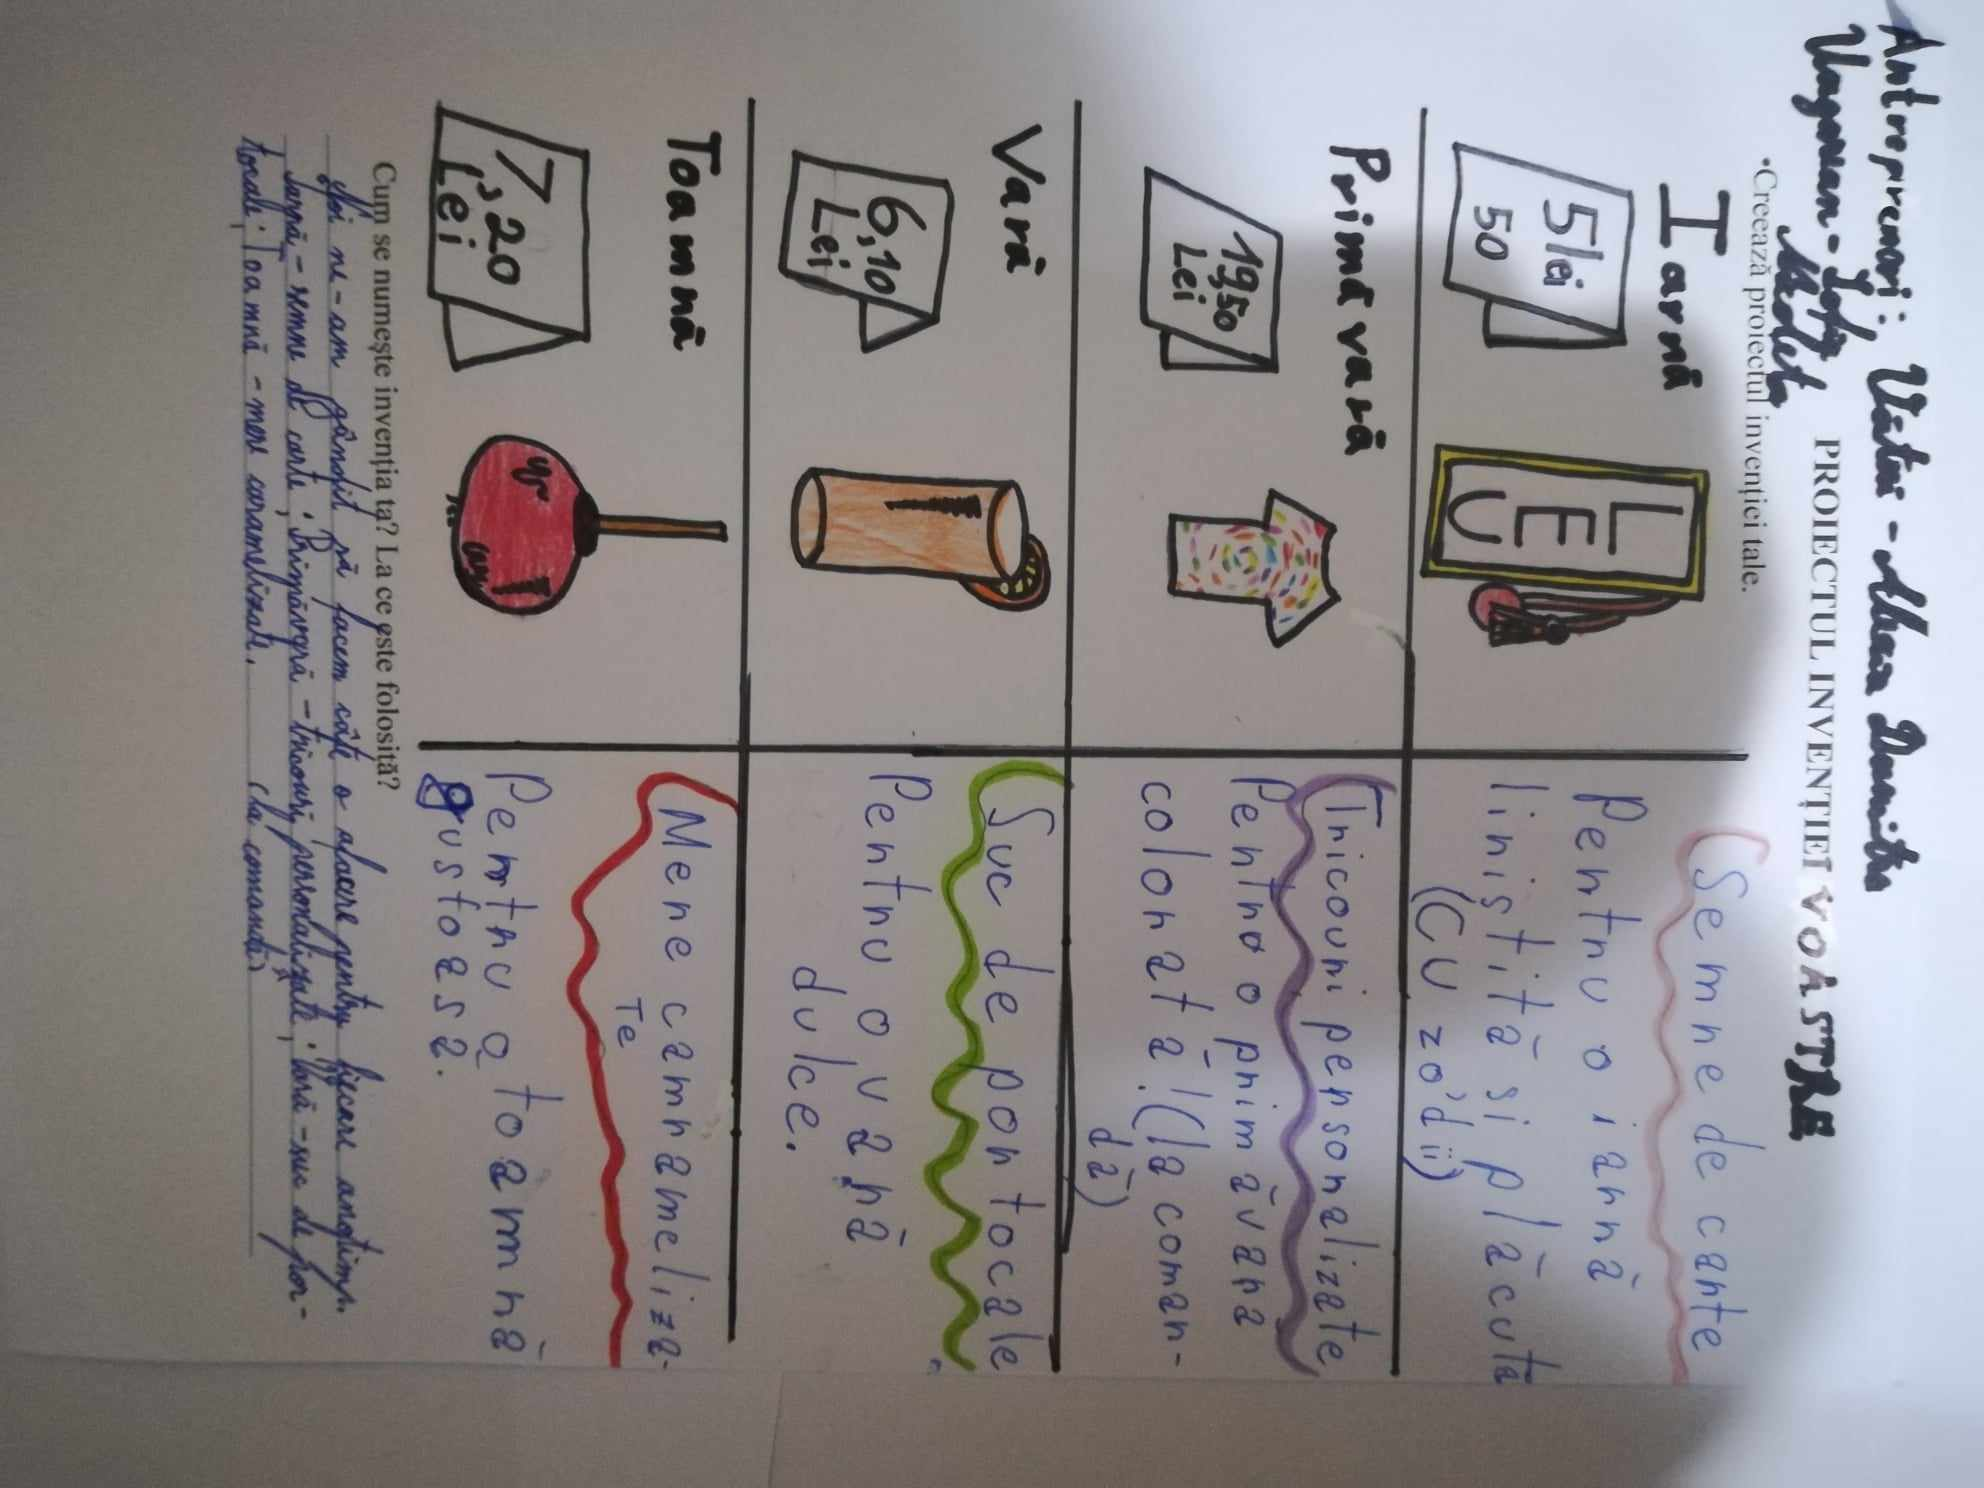 Antreprenori:
PROIECTUL INVENȚIEI VOASTRE
•Creează proiectul invenției tale.
Iarnă
5lei
50
LEU
Semne de carte
Pentru o iarnă
liniștită și plăcută
(CU zodii)
Primăvară
19,50
Lei
Tricouri personalizate
Pentru o primăvara
colorată! (la coman-
dă)
Vară
6,10
Lei
Suc de portocale
Pentru o vară
dulce.
Toamnă
7,20
Lei
Mere camrameliza-
Te
Pentru o toamnă
gustoasă.
Cum se numește invenția ta? La ce este folosită?
Noi ne-am gândit să facem câte o afacere pentru fiecare anotimp.
Iarnă - semne de carte; Primăvară - tricouri personalizate*; Vară - suc de por-
tocale; Toamnă - mere caramelizate. *(la comandă)